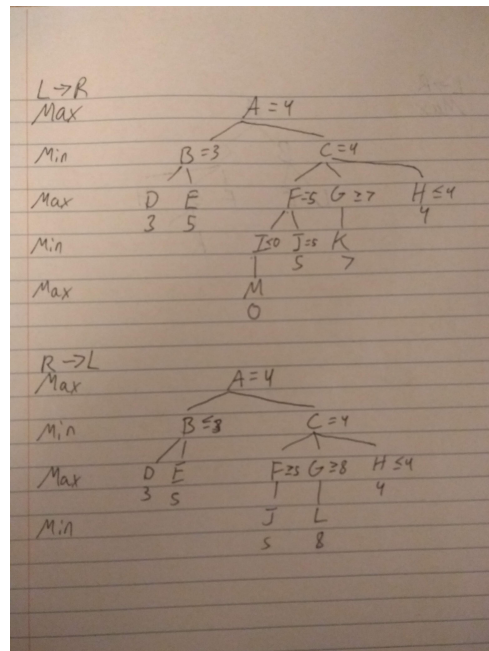 L→R
Max A=4
Min B=3 C=4
Max D E F=5 G≥7 H≤4
3 5 4
Min I≤0 J=5 K
5 7
Max M
0
R→L
Max A=4
Min B≤8 C=4
Max D E F≥5 G≥8 H≤4
3 5 4
Min J L
5 8